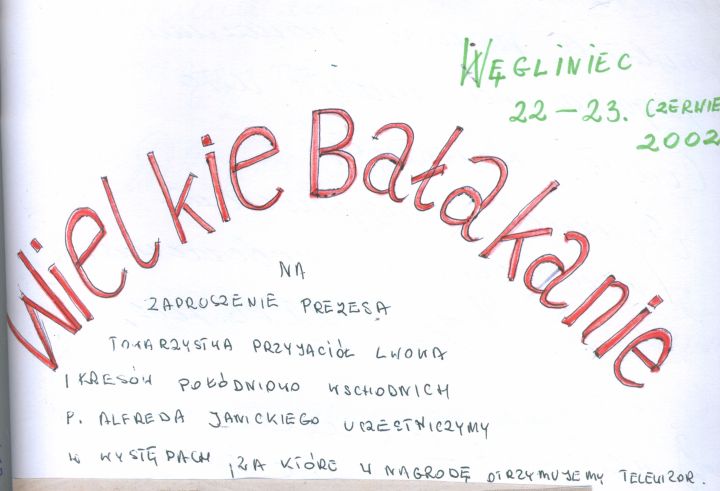 WĘGLINIEC
22 – 23. CZERWIE
2002
Wielkie Bałakanie
NA
ZAPROSZENIE PREZESA
TOWARZYSTWA PRZYJACIÓŁ LWOWA
I KRESÓW POŁÓDNIOWO WSCHODNICH
P. ALFREDA JANICKIEGO UCZESTNICZYMY
W WYSTĘPACH, ZA KTÓRE W NAGRODĘ OTRZYMUJEMY TELEWIZOR.